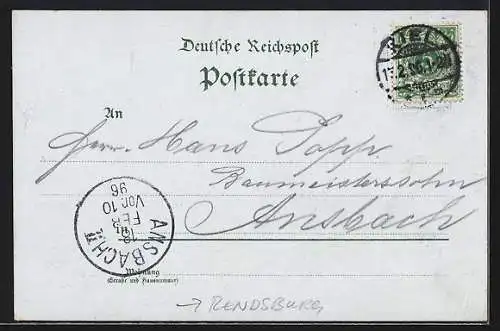 KIEL
Deutsche Reichspost
Postkarte
An
Herrn Hans Popp
Baumeisterssohn
Ansbach
ANSBACH II
FEB
Vor. 10
96
Wohnung
(Straße und Hausnummer)
→ RENDSBURG